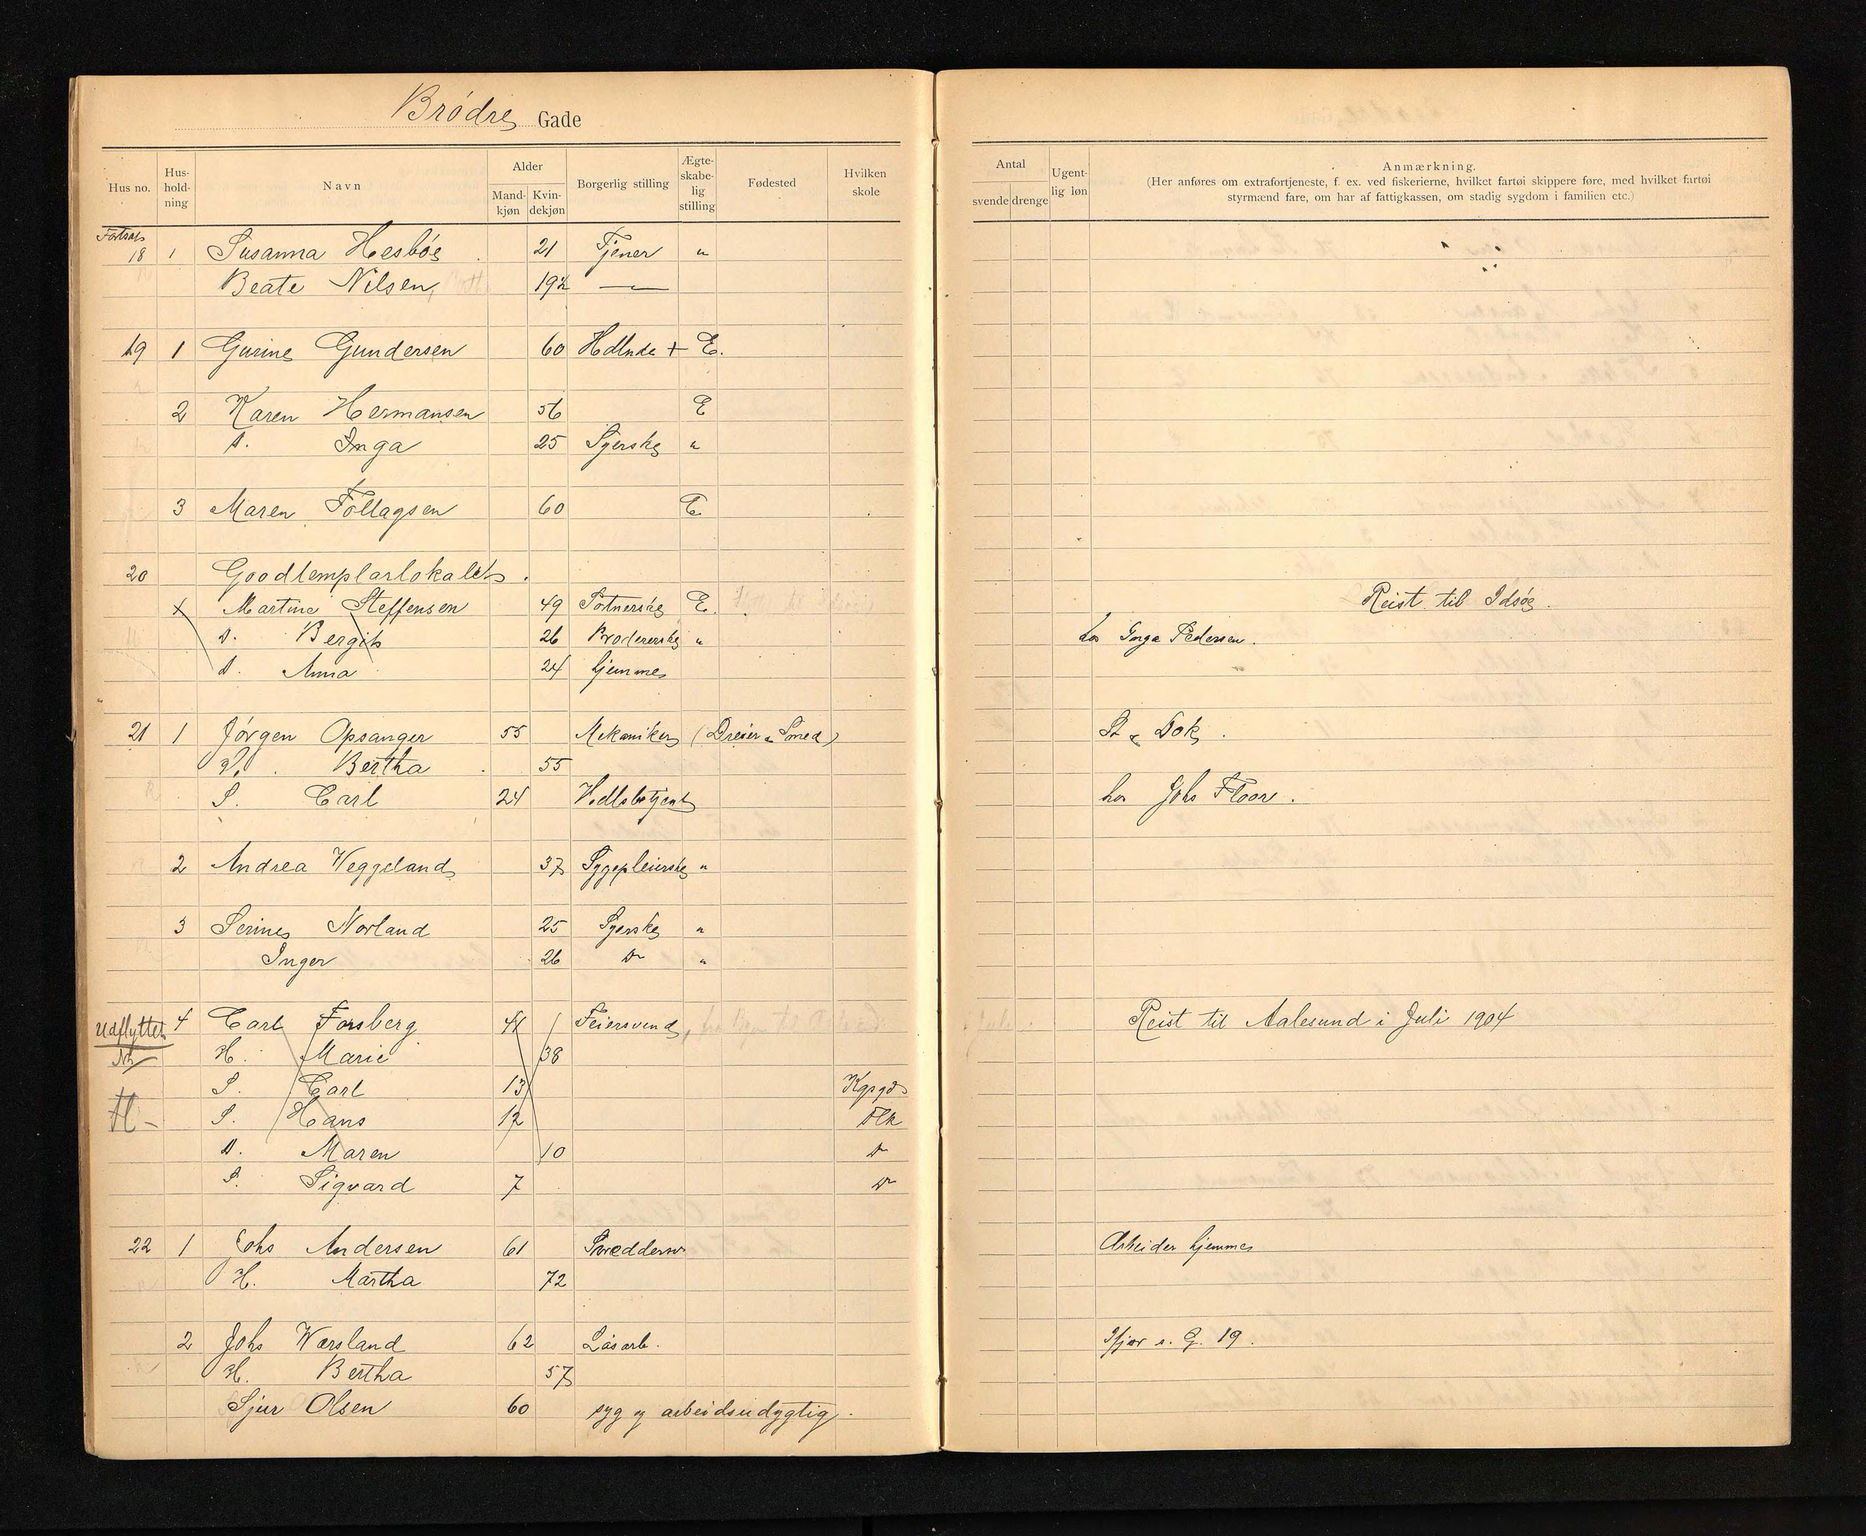 Brødre Gade
Hus no. Hus-hold-ning Navn Alder Mand-kjøn Kvin-dekjøn Borgerlig stilling Ægte-skabe-lig stilling Fødested Hvilken skole
Antal svende drenge Ugent-lig løn Anmærkning.
(Her anføres om extrafortjeneste, f. ex. ved fiskerierne, hvilket fartøi skippere føre, med hvilket fartøi
styrmænd fare, om har af fattigkassen, om stadig sygdom i familien etc.)
Fortsat
18 1 Susanna Hesbøe 21 Tjener "
Beate Nilsen 19 —
19 1 Gurine Gundersen 60 Hdlnde + E.
2 Karen Hermansen 56 E
D. Inga 25 Syerske "
3 Maren Tollagsen 60 E
20 Goodtemplarlokalet.
x Martine Steffensen 49 Portnerske E. Reist til Idsøe.
D. Bergit 26 Brodererske " hos Inga Pedersen.
D. Anna 24 hjemme
21 1 Jørgen Opsanger 55 Mekaniker (Dreier & Smed) St & Dok.
H. Bertha 55
S. Carl 24 Hdlsbetjent hos Johs Floor.
2 Andrea Veggeland 37 Sygepleierske "
3 Serine Norland 25 Syerske "
Inger 26 Do "
Udflyttet 4 Carl Forsberg 41 Feiersvend Reist til Aalesund i Juli 1904
H. Marie 38
S. Carl 13 Kgsgd
S. Hans 12 Flk
D. Maren 10 Do
S. Sigvard 7 Do
22 1 Johs Andersen 61 Skreddersv Arbeider hjemme
H. Martha 72
2 Johs Warsland 62 Løsarb. Ifjor s. G. 19.
H. Bertha 57
Sjur Olsen 60 syg og arbeidsudygtig.